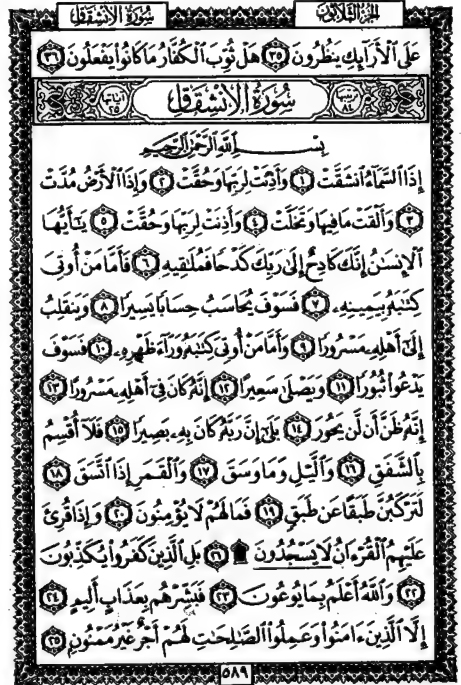 سُورَةُ الانشِقَاقِ الجُزءُ الثَّلَاثُونَ
عَلَى ٱلْأَرَآئِكِ يَنظُرُونَ ٣٥ هَلْ ثُوِّبَ ٱلْكُفَّارُ مَا كَانُوا۟ يَفْعَلُونَ ٣٦
سُورَةُ الانشِقَاقِ
بِسْمِ ٱللَّهِ ٱلرَّحْمَٰنِ ٱلرَّحِيمِ
إِذَا ٱلسَّمَآءُ ٱنشَقَّتْ ١ وَأَذِنَتْ لِرَبِّهَا وَحُقَّتْ ٢ وَإِذَا ٱلْأَرْضُ مُدَّتْ
٣ وَأَلْقَتْ مَا فِيهَا وَتَخَلَّتْ ٤ وَأَذِنَتْ لِرَبِّهَا وَحُقَّتْ ٥ يَٰٓأَيُّهَا
ٱلْإِنسَٰنُ إِنَّكَ كَادِحٌ إِلَىٰ رَبِّكَ كَدْحًا فَمُلَٰقِيهِ ٦ فَأَمَّا مَنْ أُوتِىَ
كِتَٰبَهُۥ بِيَمِينِهِۦ ٧ فَسَوْفَ يُحَاسَبُ حِسَابًا يَسِيرًا ٨ وَيَنقَلِبُ
إِلَىٰٓ أَهْلِهِۦ مَسْرُورًا ٩ وَأَمَّا مَنْ أُوتِىَ كِتَٰبَهُۥ وَرَآءَ ظَهْرِهِۦ ١٠ فَسَوْفَ
يَدْعُوا۟ ثُبُورًا ١١ وَيَصْلَىٰ سَعِيرًا ١٢ إِنَّهُۥ كَانَ فِىٓ أَهْلِهِۦ مَسْرُورًا ١٣
إِنَّهُۥ ظَنَّ أَن لَّن يَحُورَ ١٤ بَلَىٰٓ إِنَّ رَبَّهُۥ كَانَ بِهِۦ بَصِيرًا ١٥ فَلَآ أُقْسِمُ
بِٱلشَّفَقِ ١٦ وَٱلَّيْلِ وَمَا وَسَقَ ١٧ وَٱلْقَمَرِ إِذَا ٱتَّسَقَ ١٨
لَتَرْكَبُنَّ طَبَقًا عَن طَبَقٍ ١٩ فَمَا لَهُمْ لَا يُؤْمِنُونَ ٢٠ وَإِذَا قُرِئَ
عَلَيْهِمُ ٱلْقُرْءَانُ لَا يَسْجُدُونَ ۩ ٢١ بَلِ ٱلَّذِينَ كَفَرُوا۟ يُكَذِّبُونَ
٢٢ وَٱللَّهُ أَعْلَمُ بِمَا يُوعُونَ ٢٣ فَبَشِّرْهُم بِعَذَابٍ أَلِيمٍ ٢٤
إِلَّا ٱلَّذِينَ ءَامَنُوا۟ وَعَمِلُوا۟ ٱلصَّٰلِحَٰتِ لَهُمْ أَجْرٌ غَيْرُ مَمْنُونٍۭ ٢٥
٥٨٩